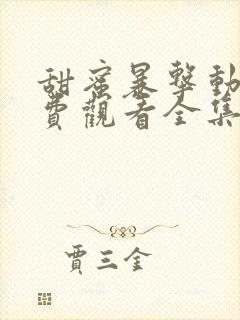 甜蜜暴擊動
費觀看全集
賈三金